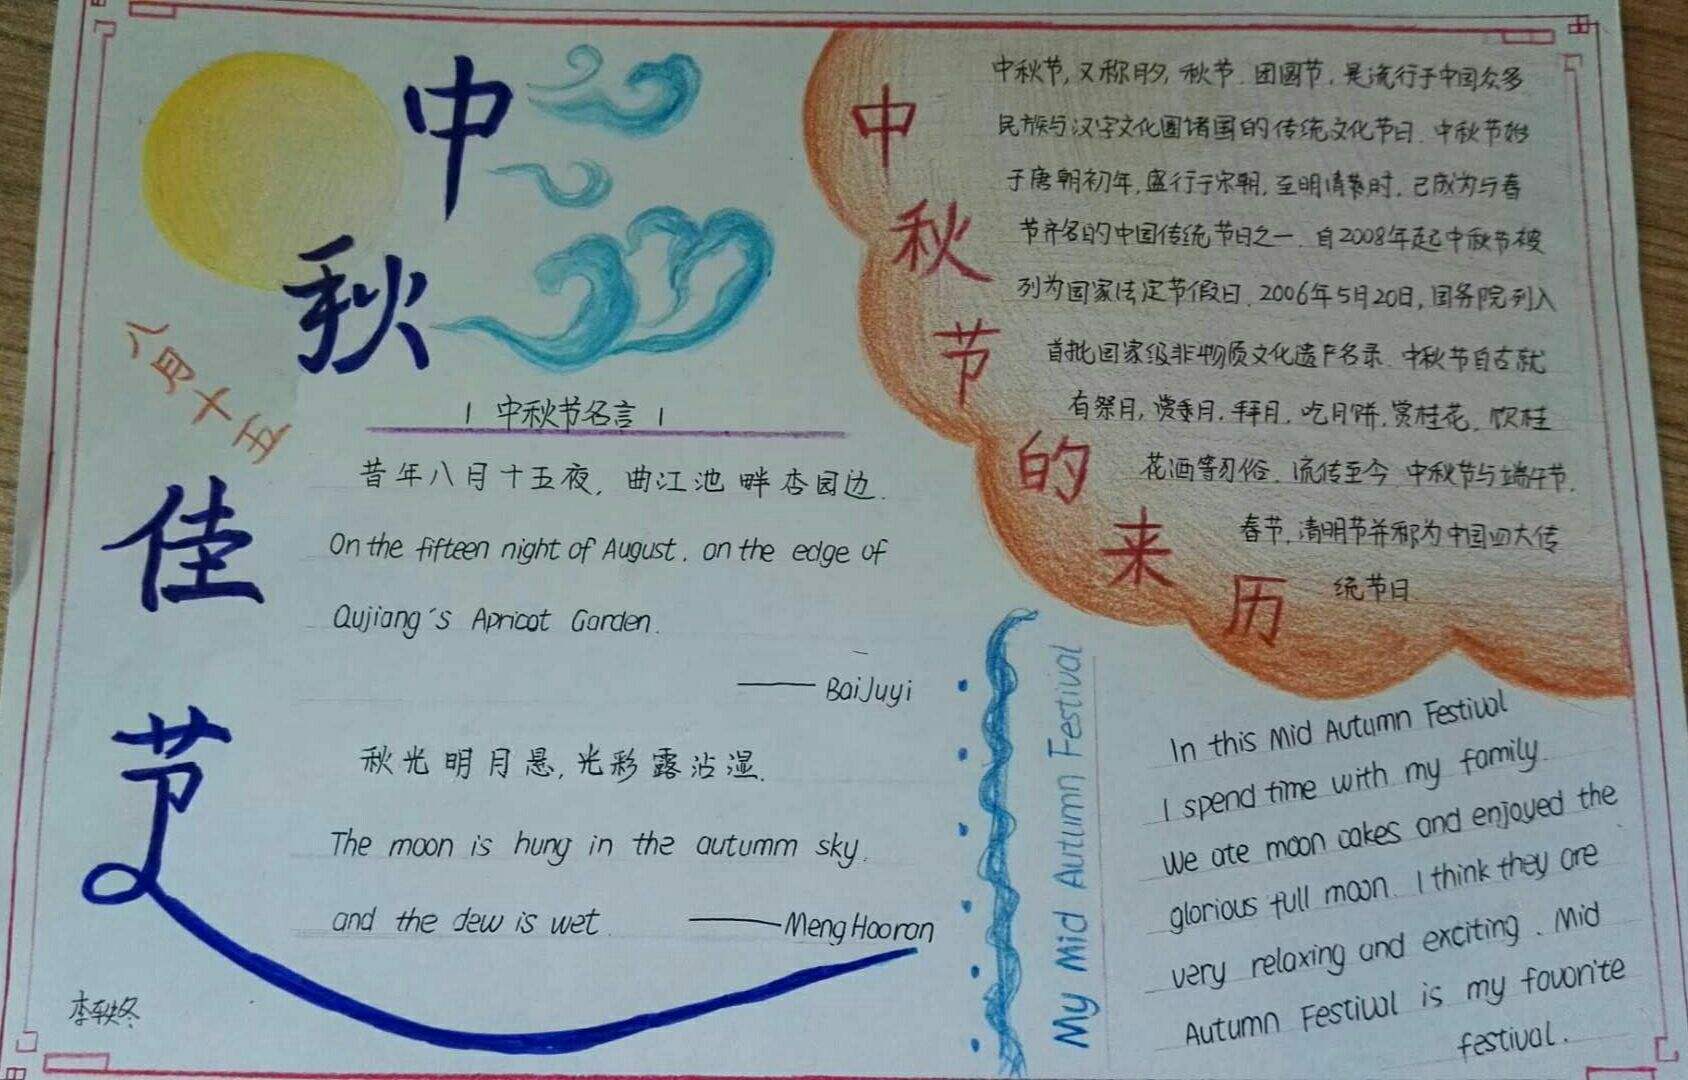 中秋佳节
八月十五
中秋节名言
昔年八月十五夜，曲江池畔杏园边.
On the fifteen night of August, on the edge of
Qujiang's Apricot Garden.
—— BaiJuyi
秋光明月悬,光彩露沾湿.
The moon is hung in the autumm sky.
and the dew is wet.
—— Meng Haoran
中秋节的来历
中秋节,又称月夕,秋节.团圆节,是流行于中国众多
民族与汉字文化圈诸国的传统文化节日.中秋节始
于唐朝初年,盛行于宋朝,至明清时,已成为与春
节齐名的中国传统节日之一.自2008年起中秋节被
列为国家法定节假日.2006年5月20日,国务院列入
首批国家级非物质文化遗产名录.中秋节自古就
有祭月,赏月,拜月,吃月饼,赏桂花,饮桂
花酒等习俗.流传至今.中秋节与端午节,
春节,清明节并称为中国四大传
统节日.
My Mid Autumn Festival
In this Mid Autumn Festival
I spend time with my family.
We ate moon cakes and enjoyed the
glorious full moon. I think they are
very relaxing and exciting. Mid
Autumn Festival is my favorite
festival.